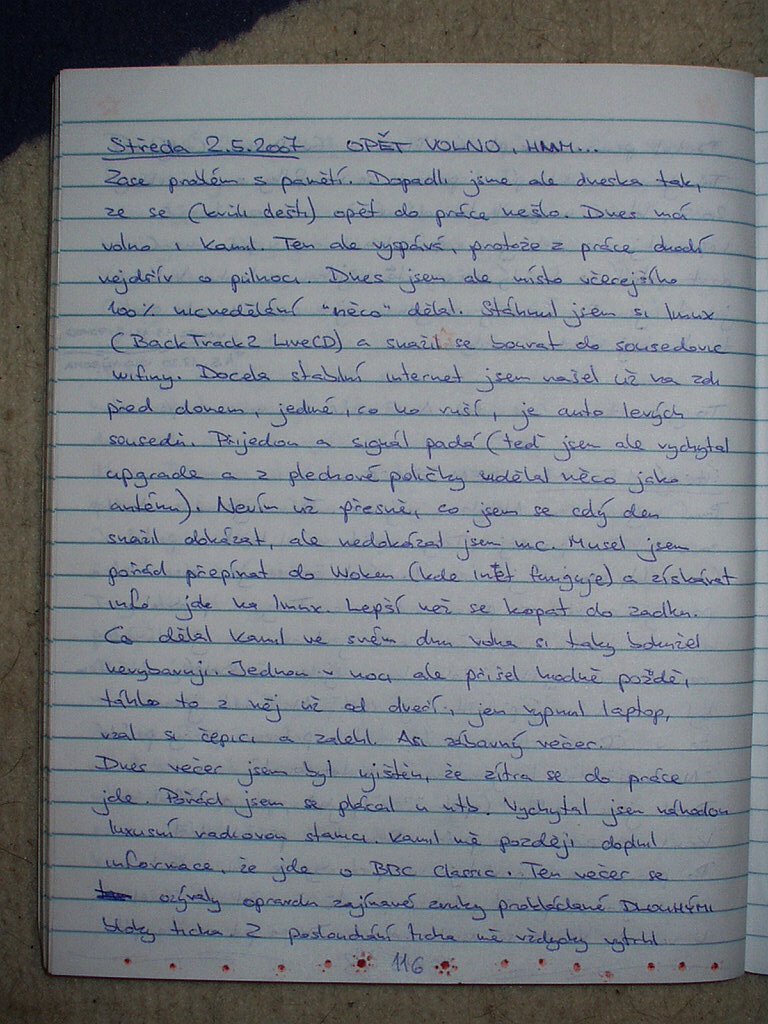 Středa 2.5.2007 OPĚT VOLNO, HMM...
Zase problém s pamětí. Dopadli jsme ale dneska tak,
že se (kvůli dešti) opět do práce nešlo. Dnes má
volno i Kamil. Ten ale vyspává, protože z práce chodí
nejdřív o půlnoci. Dnes jsem ale místo včerejšího
100% nicnedělání "něco" dělal. Stáhnul jsem si linux
(BackTrack2 LiveCD) a snažil se bourat do sousedovic
wifiny. Docela stabilní internet jsem našel už na zdi
před domem, jediné, co ho ruší, je auto levých
sousedů. Přijedou a signál padá (teď jsem ale vychytal
upgrade a z plechové poličky udělal něco jako
anténu). Nevím už přesně, co jsem se celý den
snažil dokázat, ale nedokázal jsem nic. Musel jsem
pořád přepínat do Woken (kde iňtět funguje) a získávat
info jde na linux. Lepší než se kopat do zadku.
Co dělal Kamil ve svém dnu volna si taky bohužel
nevybavuji. Jednou v noci ale přišel hodně pozdě,
táhlo to z něj už od dveří, jen vypnul laptop,
vzal si čepici a zalehl. Asi zábavný večer.
Dnes večer jsem byl ujištěn, že zítra se do práce
jde. Pořád jsem se plácal u ntb. Vychytal jsem náhodou
luxusní radiovou stanici. Kamil mě později doplnil
informace, že jde o BBC Classic. Ten večer se
ozývaly opravdu zajímavé zvuky prokládané DLOUHÝMI
bloky ticha. Z poslouchání ticha mě vždycky vytrhl
116